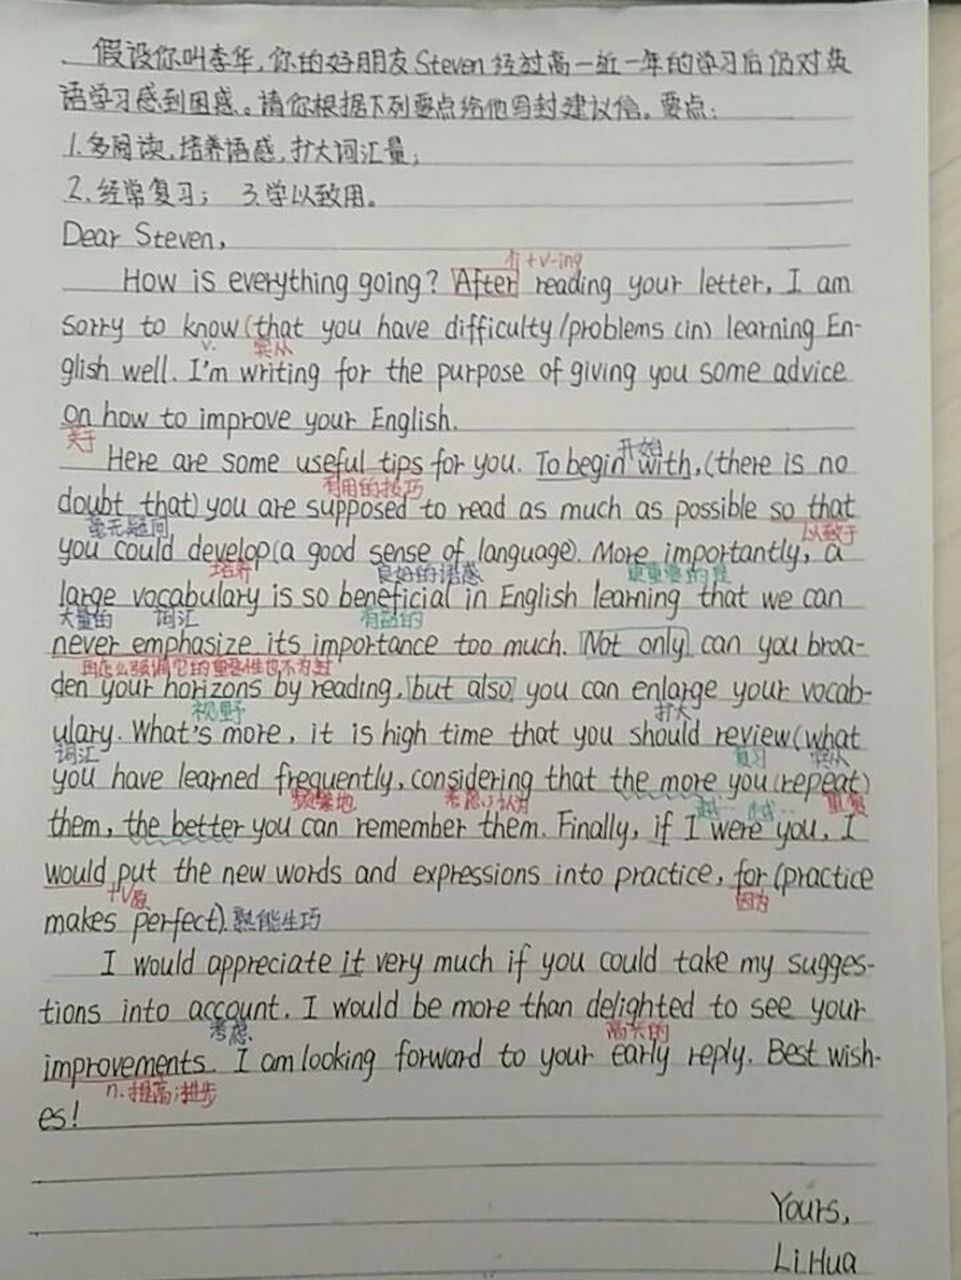 假设你叫李华,你的好朋友Steven经过高一近一年的学习后仍对英
语学习感到困惑。请你根据下列要点给他写封建议信。要点:
1.多阅读,培养语感,扩大词汇量;
2.经常复习; 3.学以致用。
Dear Steven,
介+v-ing
How is everything going? After reading your letter, I am
sorry to know (that you have difficulty/problems (in) learning En-
v. 宾从
glish well. I'm writing for the purpose of giving you some advice
on how to improve your English.
关于 开始
Here are some useful tips for you. To begin with, (there is no
有用的技巧
doubt that) you are supposed to read as much as possible so that
毫无疑问 以致于
you could develop (a good sense of language). More importantly, a
培养 良好的语感 更重要的是
large vocabulary is so beneficial in English learning that we can
大量的 词汇 有益的
never emphasize its importance too much. Not only can you broa-
再怎么强调它的重要性也不为过
den your horizons by reading, but also you can enlarge your vocab-
视野 扩大
ulary. What's more, it is high time that you should review (what
词汇 复习 宾从
you have learned frequently, considering that the more you (repeat)
频繁地 考虑;认为 越… 越… 重复
them, the better you can remember them. Finally, if I were you, I
would put the new words and expressions into practice, for (practice
+V原 因为
makes perfect). 熟能生巧
I would appreciate it very much if you could take my sugges-
tions into account. I would be more than delighted to see your
考虑 高兴的
improvements. I am looking forward to your early reply. Best wish-
n.提高;进步
es!
Yours,
Li Hua